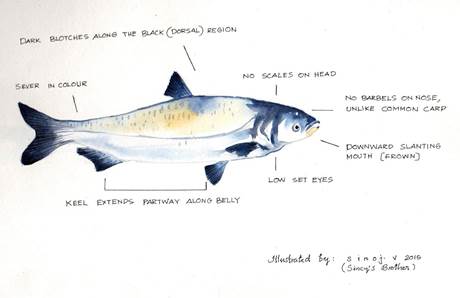 DARK BLOTCHES ALONG THE BLACK (DORSAL) REGION
NO SCALES ON HEAD
SEVER IN COLOUR
NO BARBELS ON NOSE,
UNLIKE COMMON CARP
DOWNWARD SLANTING
MOUTH [FROWN]
LOW SET EYES
KEEL EXTENDS PARTWAY ALONG BELLY
Illustrated by: sinoj. v 2015
(Sincy's Brother)